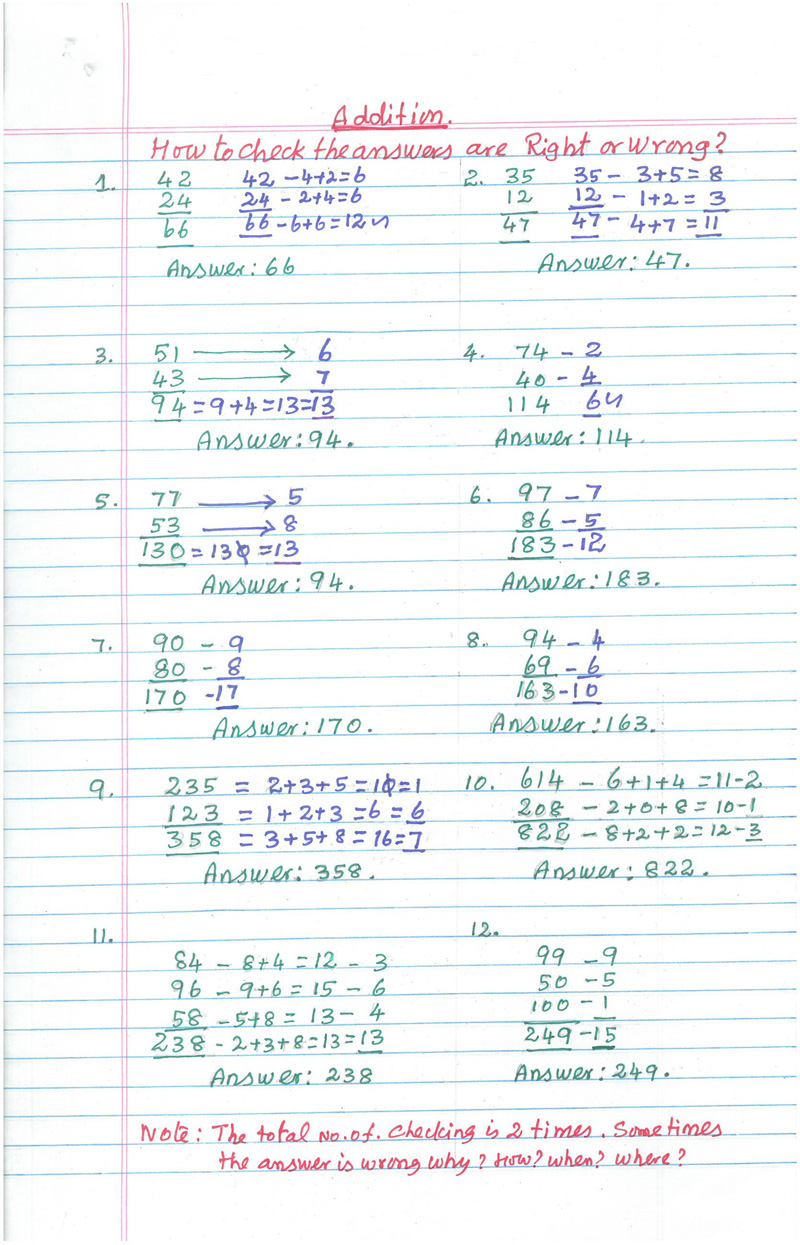 Addition.
How to check the answers are Right or Wrong?
1. 42 42 - 4+2=6
24 24 - 2+4=6
66 66 - 6+6=12
Answer: 66
2. 35 35 - 3+5=8
12 12 - 1+2=3
47 47 - 4+7=11
Answer: 47.
3. 51 → 6
43 → 7
94=9+4=13=13
Answer: 94.
4. 74 - 2
40 - 4
114 6
Answer: 114.
5. 77 → 5
53 → 8
130=130=13
Answer: 94.
6. 97 - 7
86 - 5
183 - 12
Answer: 183.
7. 90 - 9
80 - 8
170 - 17
Answer: 170.
8. 94 - 4
69 - 6
163 - 10
Answer: 163.
9. 235 = 2+3+5=10=1
123 = 1+2+3=6=6
358 = 3+5+8=16=7
Answer: 358.
10. 614 - 6+1+4=11-2
208 - 2+0+8=10-1
822 - 8+2+2=12-3
Answer: 822.
11.
84 - 8+4=12 - 3
96 - 9+6=15 - 6
58 - 5+8=13 - 4
238 - 2+3+8=13=13
Answer: 238
12.
99 - 9
50 - 5
100 - 1
249 - 15
Answer: 249.
Note: The total No.of. Checking is 2 times. Sometimes
the answer is wrong why? How? when? where?